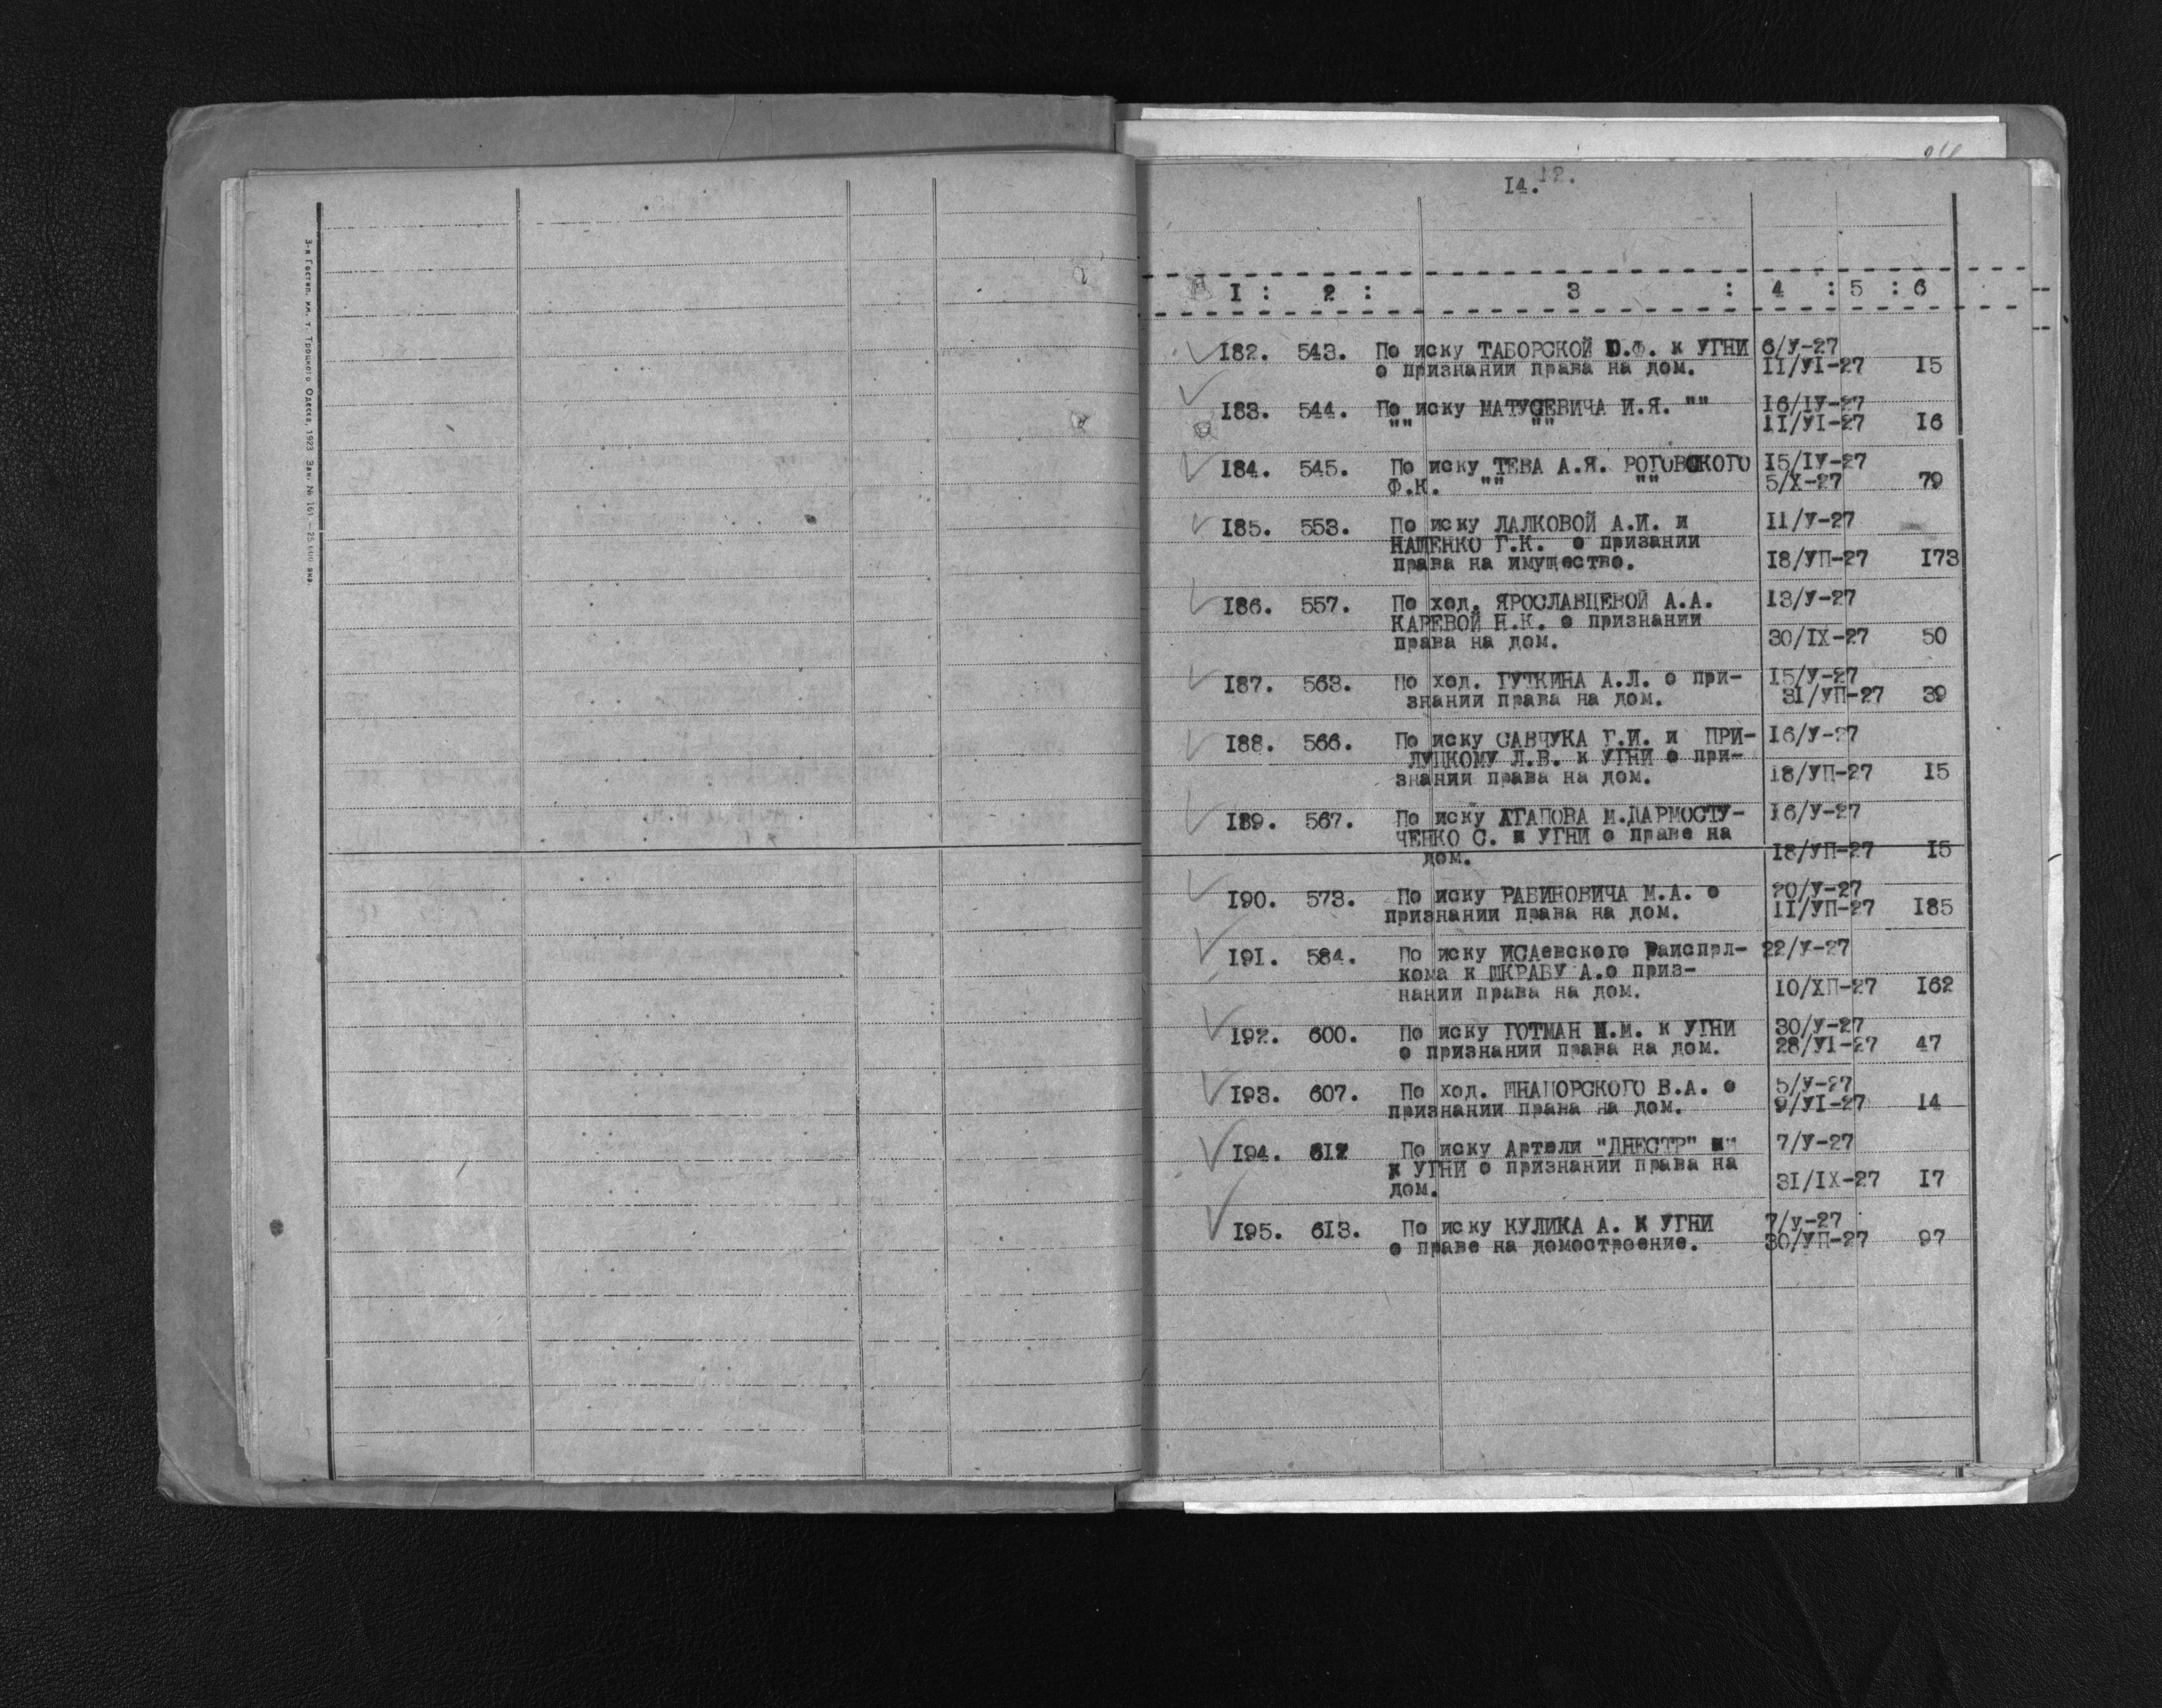 3-я Гостип. им. т. Троцкого Одесса, 1923 Зак. № 161 —
14. 12.
I : 2 : 3 : 4 : 5 : 6
I82. 543. По иску ТАБОРСКОЙ Ю.Ф. к УГНИ 6/У-27
о признании права на дом. II/УI-27 I5
I83. 544. По иску МАТУСЕВИЧА И.Я. "" I6/IУ-27
"" "" II/УI-27 I6
I84. 545. По иску ТЕВА А.Я. РОГОВСКОГО I5/IУ-27
Ф.К. "" "" 5/Х-27 79
I85. 553. По иску ЛАЛКОВОЙ А.И. и II/У-27
НАЩЕНКО Г.К. о призании
права на имущество. I8/УП-27 I73
I86. 557. По ход. ЯРОСЛАВЦЕВОЙ А.А. I3/У-27
КАРЕВОЙ Н.К. о признании
права на дом. 30/IХ-27 50
I87. 563. По ход. ГУТКИНА А.Л. о при- I5/У-27
знании права на дом. 3I/УП-27 39
I88. 566. По иску САВЧУКА Г.И. и ПРИ- I6/У-27
ЛУЦКОМУ Л.В. к УГНИ о при-
знании права на дом. I8/УП-27 I5
I89. 567. По иску АГАПОВА М.ДАРМОСТУ- I6/У-27
ЧЕНКО С. к УГНИ о праве на
дом. I8/УП-27 I5
I90. 573. По иску РАБИНОВИЧА М.А. о 20/У-27
признании права на дом. II/УП-27 I85
I9I. 584. По иску ИСАевского Раиспрл- 22/У-27
кома к ШКРАБУ А.о приз-
нании права на дом. I0/ХП-27 I62
I92. 600. По иску ГОТМАН И.М. к УГНИ 30/У-27
о признании права на дом. 28/УI-27 47
I93. 607. По ход. ШНАПОРСКОГО В.А. о 5/У-27
признании права на дом. 9/УI-27 I4
I94. 612 По иску Артели "ДНЕСТР" 7/У-27
к УГНИ о признании права на
дом. 3I/IХ-27 I7
I95. 613. По иску КУЛИКА А. К УГНИ 7/у-27
о праве на домостроение. 30/УП-27 97